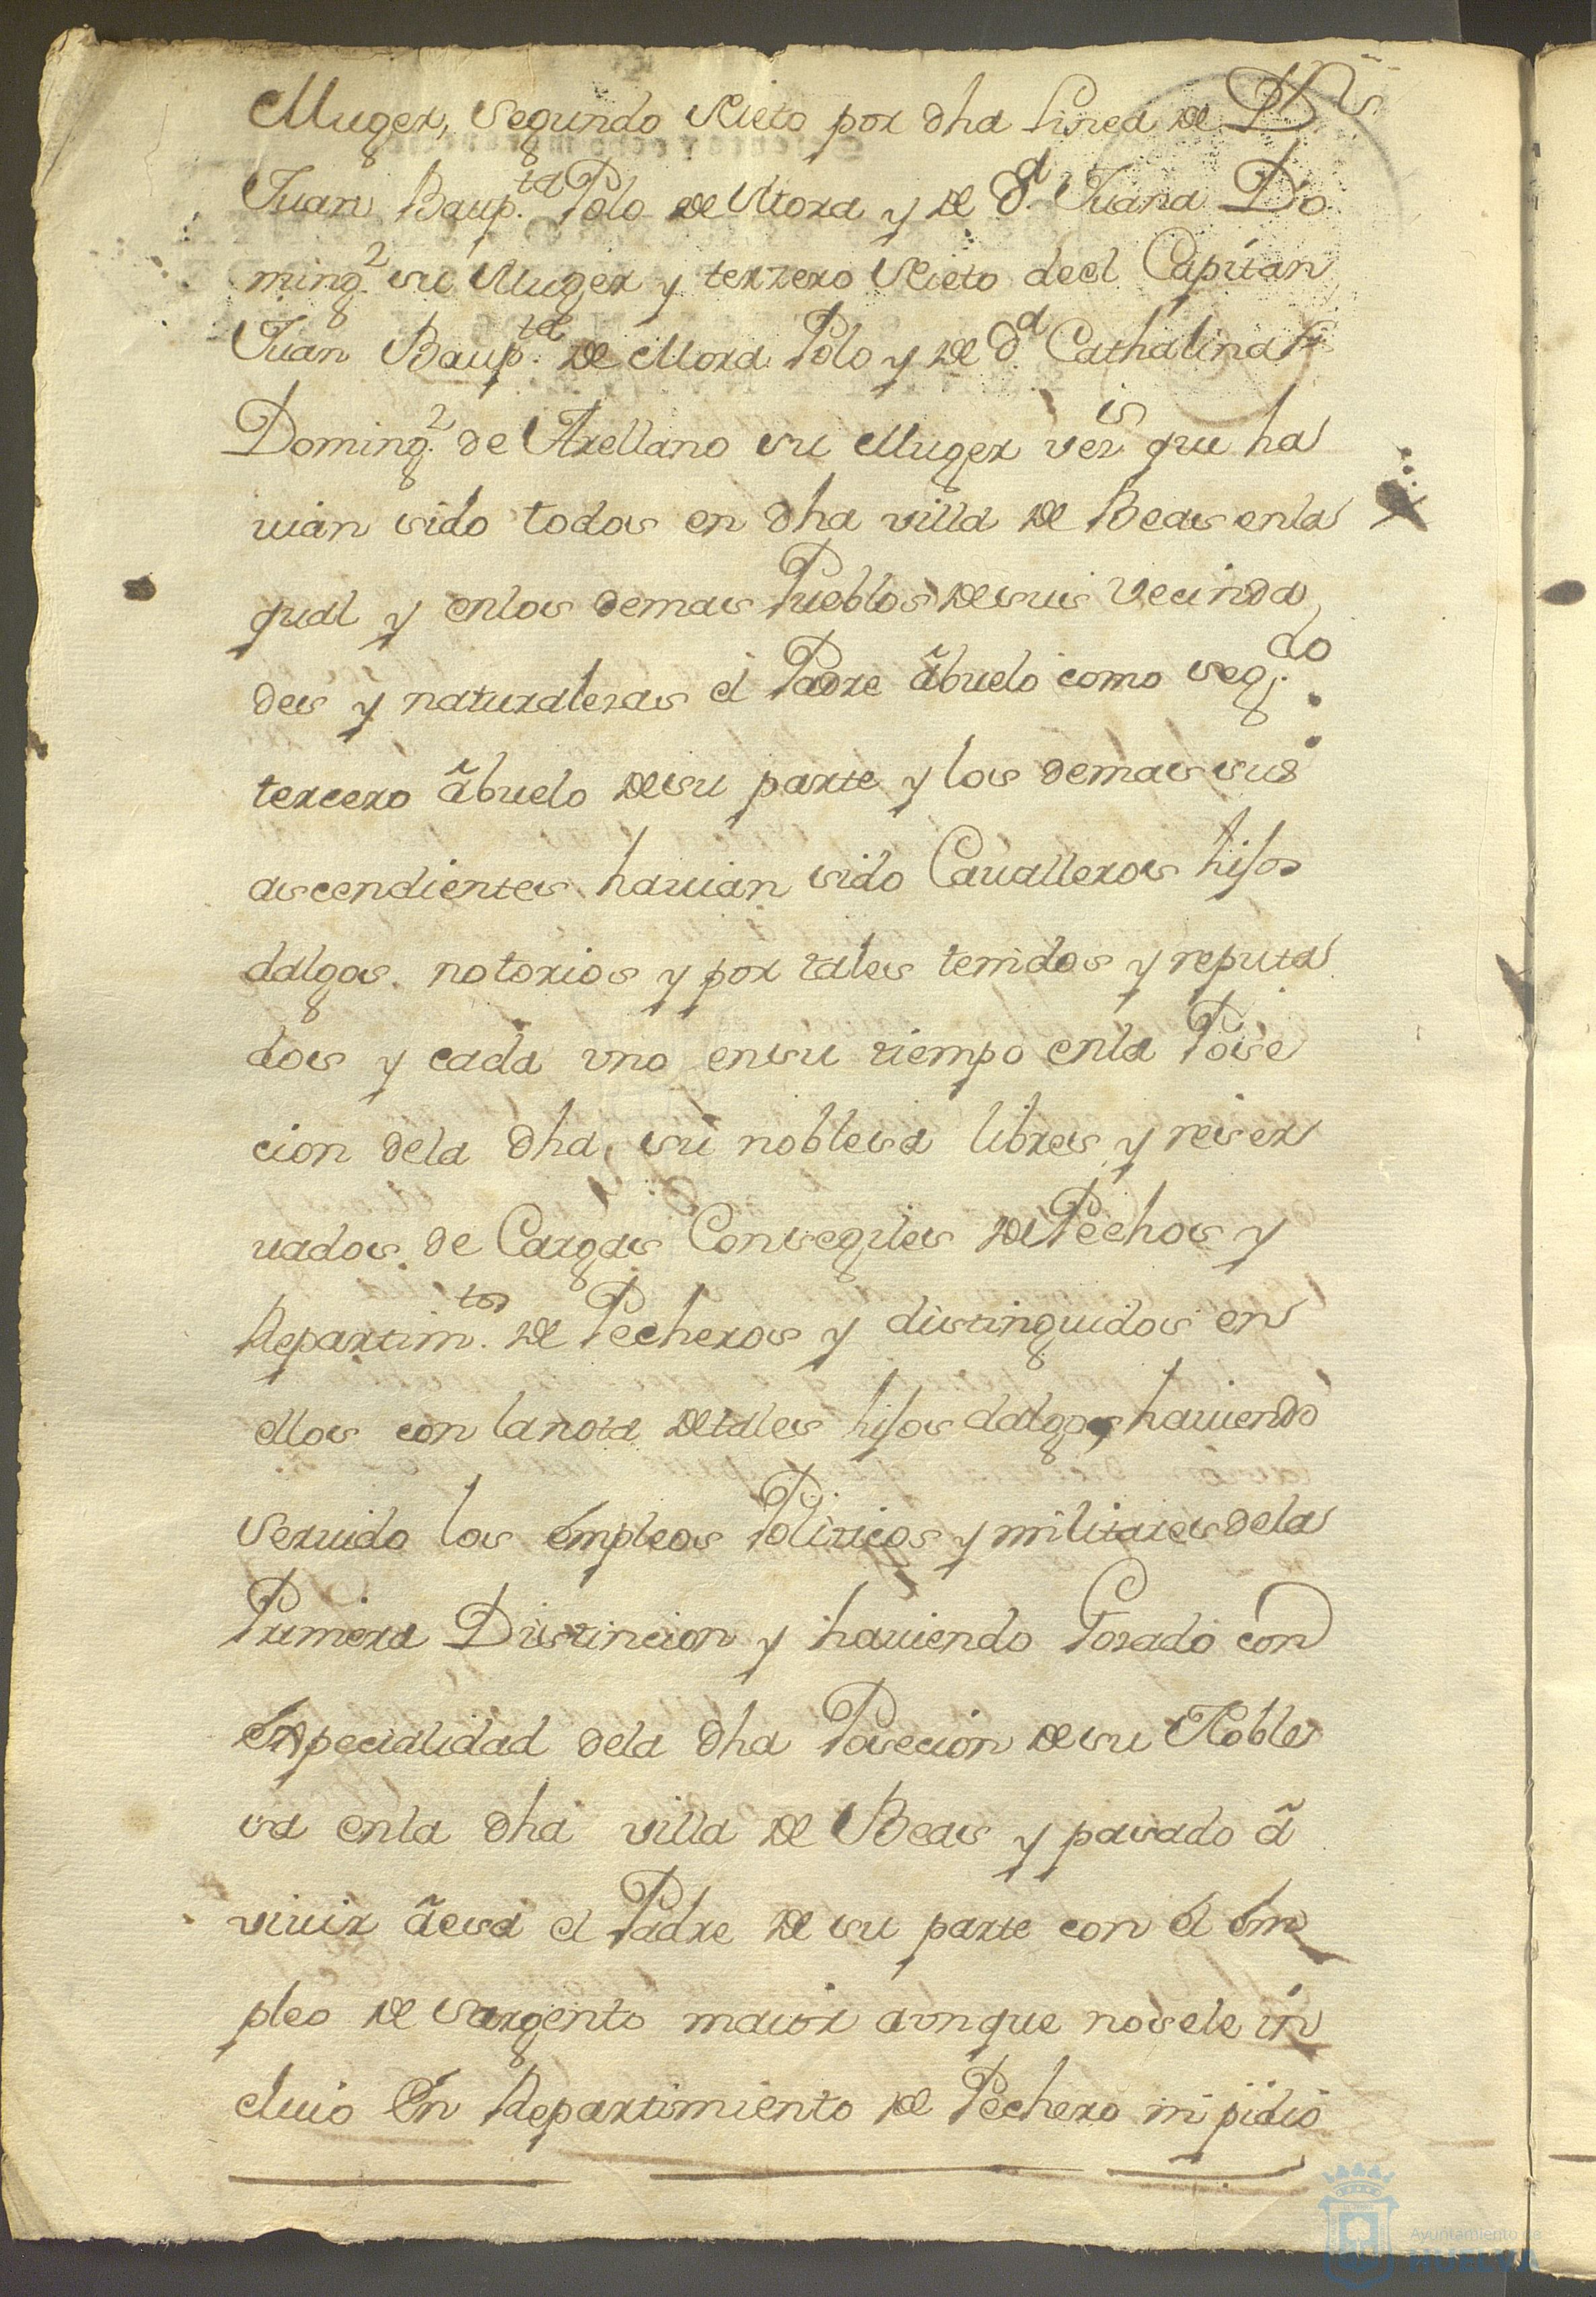 Muger, Segundo Nieto por dha Linea de Dn
Juan Baup.ta Polo de Mora y de D.a Juana Do
ming.z su Muger y terzero Nieto deel Capitan
Juan Baup.ta de Mora Polo y de D.a Cathalina
Doming.z de Arellano su Muger vez.s que ha
uian sido todos en dha villa de Beas enla
qual y enlos demas Pueblos desus Vecinda
des y naturalezas el Padre ãbuelo como seg.do
tercero ãbuelo desu parte y los demas sus
ascendientes hauian sido Caualleros hijos
dalgos notorios y por tales tenidos y reputa
dos y cada vno ensu tiempo enla Pose
cion dela dha su noblesa libres y reser
uados de Cargas Consegiles de Pechos y
Repartim.tos de Pecheros y distinguidos en
ellos con lanota detales hijos dalgos, hauiendo
seruido los empleos Politicos y militares dela
Primera Distincion y hauiendo Gozado con
especialidad dela dha Posecion desu Noble
sa enla dha villa de Beas y pasado ã
viuir ãesa el Padre de su parte con el em
pleo de Sargento maior aunque nosele in
cluio En Repartimiento de Pechero ni pidio
Ayuntamiento de
HUELVA